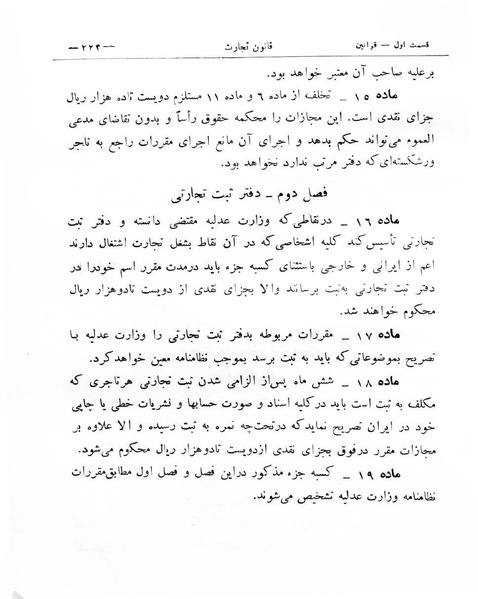 قسمت اول — قوانین
قانون تجارت
— ۲۲۳ —
برعلیه صاحب آن معتبر خواهد بود.
ماده ۱۵ ـ تخلف از ماده ۶ و ماده ۱۱ مستلزم دویست تاده هزار ریال
جزای نقدی است. این مجازات را محکمه حقوق رأساً و بدون تقاضای مدعی
العموم می‌تواند حکم بدهد و اجرای آن مانع اجرای مقررات راجع به تاجر
ورشکسته‌ای‌که دفتر مرتب ندارد نخواهد بود.
فصل دوم ـ دفتر ثبت تجارتی
ماده ۱۶ ـ درنقاطی‌که وزارت عدلیه مقتضی دانسته و دفتر ثبت
تجارتی تأسیس‌کند کلیه اشخاصی‌که در آن نقاط بشغل تجارت اشتغال دارند
اعم از ایرانی و خارجی باستثنای کسبه جزء باید درمدت مقرر اسم خودرا در
دفتر ثبت تجارتی به‌ثبت برسانند والا بجزای نقدی از دویست تادوهزار ریال
محکوم خواهند شد.
ماده ۱۷ ـ مقررات مربوطه بدفتر ثبت تجارتی را وزارت عدلیه با
تصریح بموضوعاتی‌که باید به ثبت برسد بموجب نظامنامه معین خواهدکرد.
ماده ۱۸ ـ شش ماه پس‌از الزامی شدن ثبت تجارتی هرتاجری که
مکلف به ثبت است باید درکلیه اسناد و صورت حسابها و نشریات خطی یا چاپی
خود در ایران تصریح نمایدکه درتحت‌چه نمره به ثبت رسیده و الا علاوه بر
مجازات مقرر درفوق بجزای نقدی ازدویست تادوهزار ریال محکوم می‌شود.
ماده ۱۹ ـ کسبه جزء مذکور دراین فصل و فصل اول مطابق‌مقررات
نظامنامه وزارت عدلیه تشخیص می‌شوند.